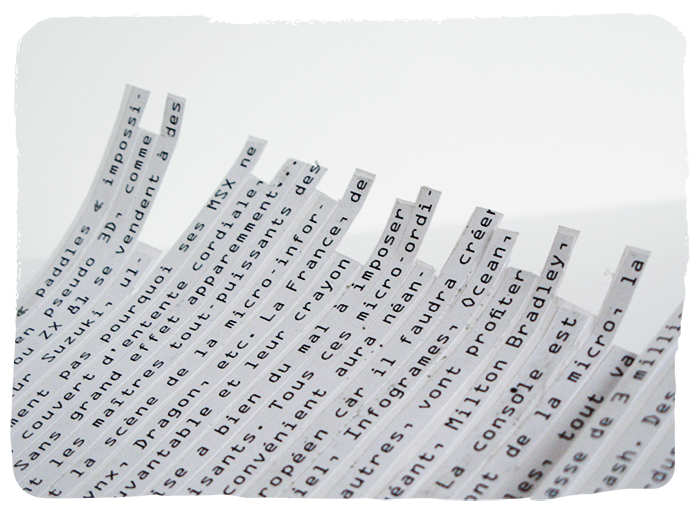 & paddles & impossi-
en pseudo 3D, comme
ou ZX 81 se vendent à des
ur Suzuki, ul
ment pas pourquoi ses MSX ne
couvert d'entente cordiale,
Sans grand effet apparemment...
nt les maîtres tout-puissants des
t la scène de la micro-infor-
ynx, Dragon, etc. La France, de
uvantable et leur crayon
ise a bien du mal à imposer
isants. Tous ces micro-ordi-
convénient aura néan-
ropéen car il faudra créer
iel, Infogrames, Ocean,
autres, vont profiter
éant, Milton Bradley,
La console est
nt de la micro, la
les, tout va
asse de 3 milli
ash. Des
du